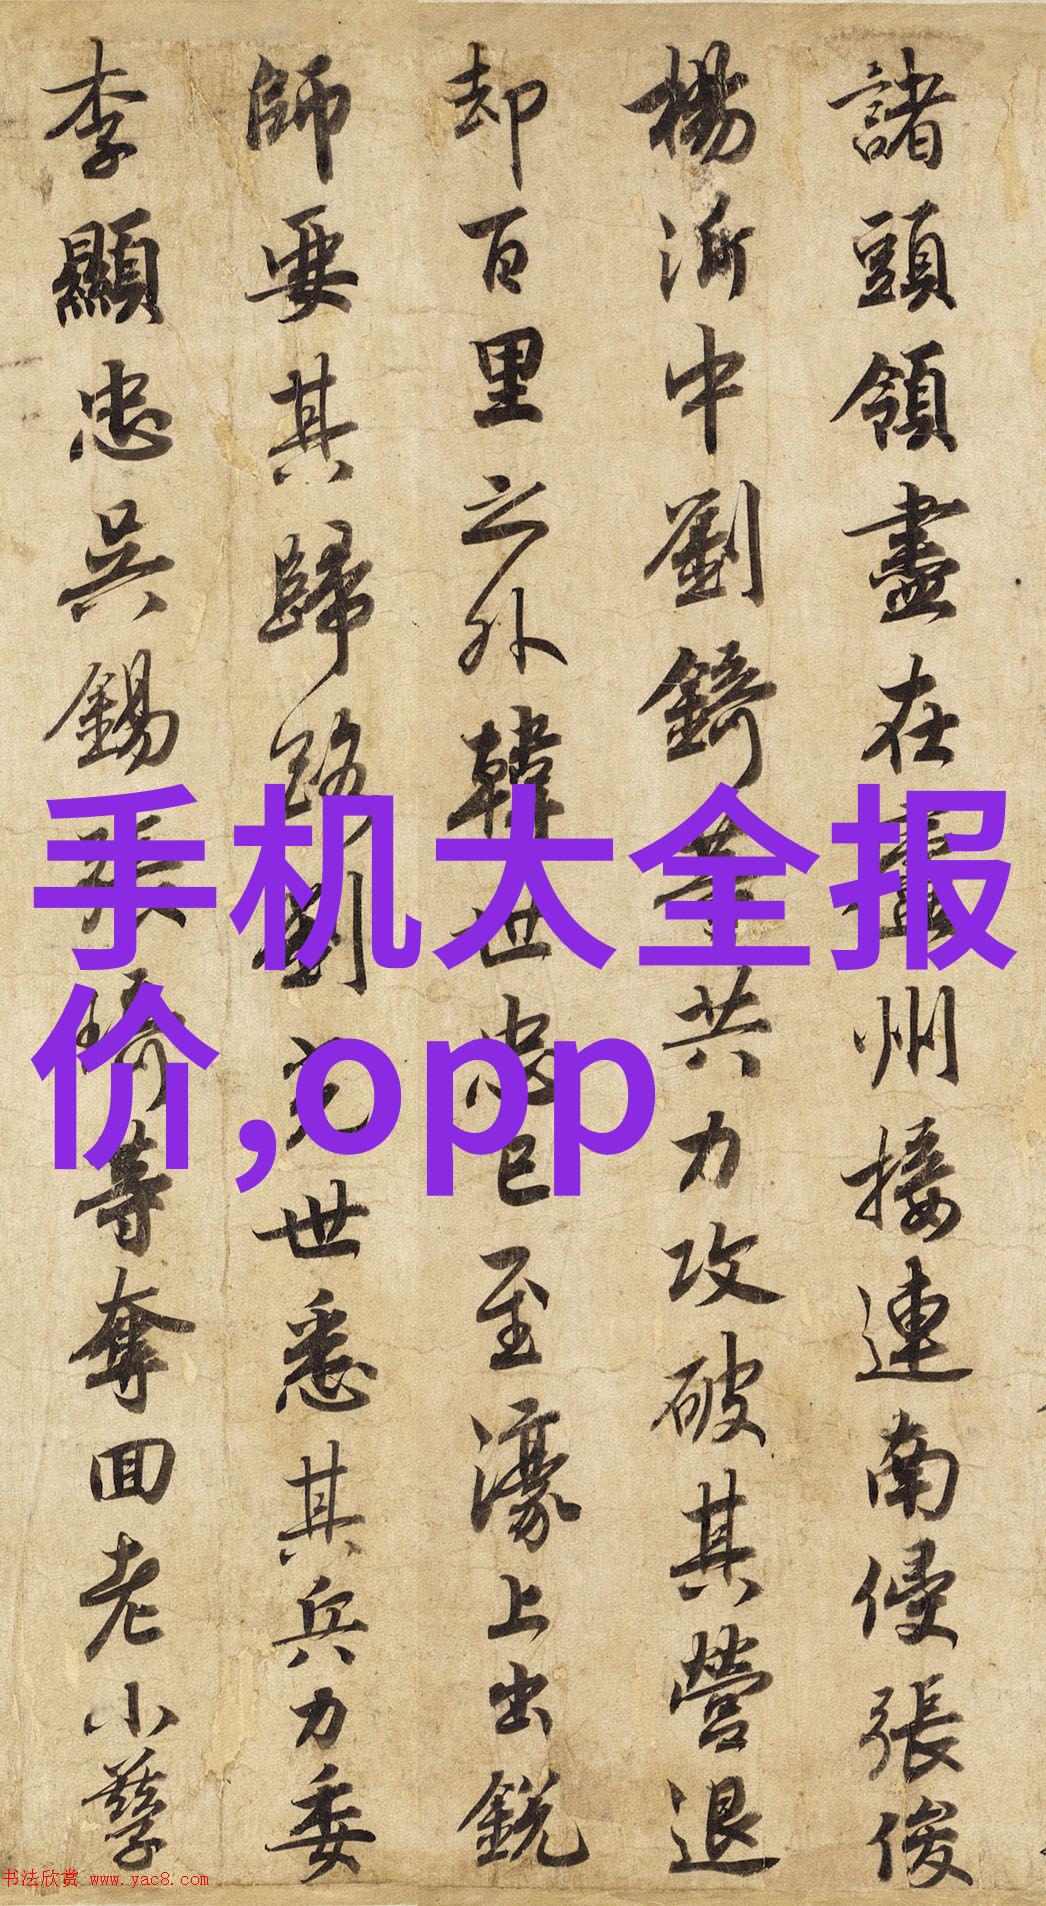 諸頭領盡在廬州接連南侵張俊
楊沂中劉錡等共力攻破其營退
却百里之外韓世忠已至濠上出銳
師要其歸路劉光世悉其兵力委
李顯忠吳錫張琦等奪回老小孳
手机大全报
价,opp
书法欣赏 www.yac8.com